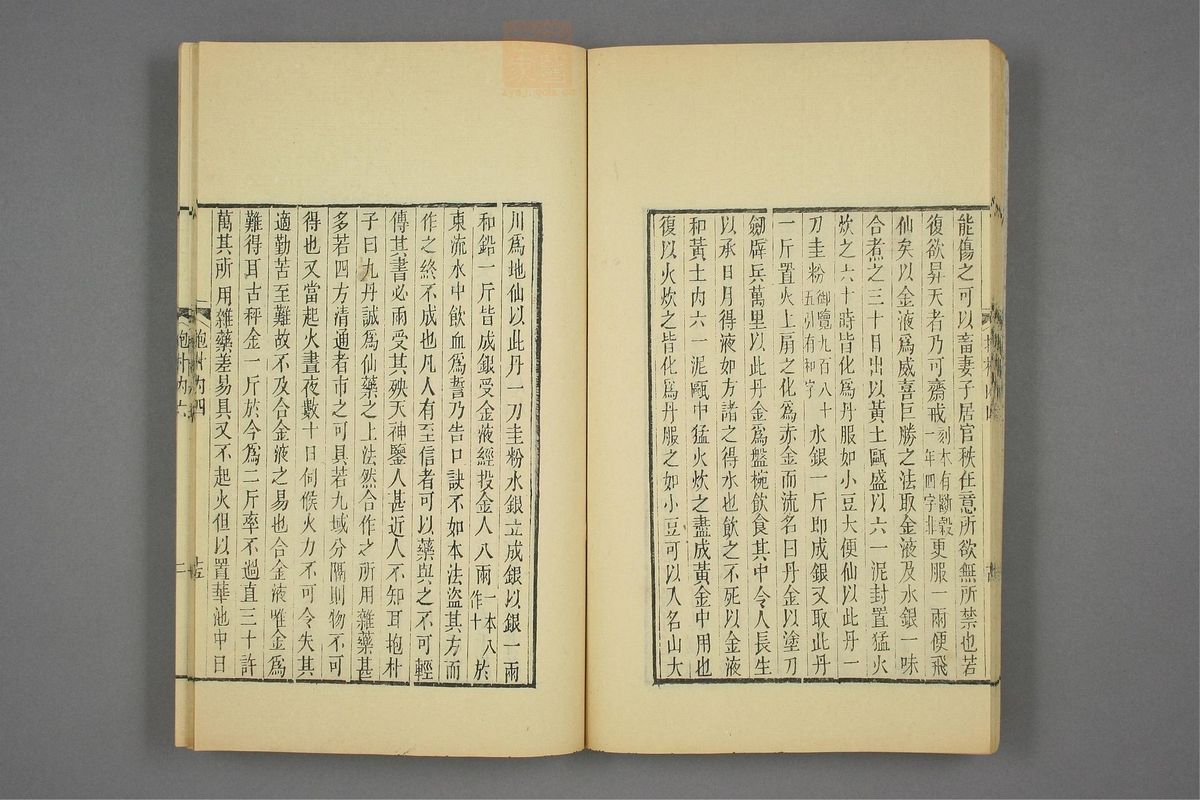 能傷之可以畜妻子居官秩在意所欲無所禁也若
復欲昇天者乃可齋戒刻本有斷穀一年四字非更服一兩便飛
仙矣以金液爲威喜巨勝之法取金液及水銀一味
合煮之三十日出以黃土甌盛以六一泥封置猛火
炊之六十時皆化爲丹服如小豆大便仙以此丹一
刀圭粉御覽九百八十五引有和字水銀一斤卽成銀又取此丹
一斤置火上扇之化爲赤金而流名曰丹金以塗刀
劒辟兵萬里以此丹金爲盤椀飲食其中令人長生
以承日月得液如方諸之得水也飲之不死以金液
和黃土內六一泥甌中猛火炊之盡成黃金中用也
復以火炊之皆化爲丹服之如小豆可以入名山大
川爲地仙以此丹一刀圭粉水銀立成銀以銀一兩
和鉛一斤皆成銀受金液經投金人八兩一本八作十於
東流水中飲血爲誓乃告口訣不如本法盜其方而
作之終不成也凡人有至信者可以藥與之不可輕
傳其書必兩受其殃天神鑒人甚近人不知耳抱朴
子曰九丹誠爲仙藥之上法然合作之所用雜藥甚
多若四方清通者市之可具若九域分隔則物不可
得也又當起火晝夜數十日伺候火力不可令失其
適勤苦至難故不及合金液之易也合金液唯金爲
難得耳古秤金一斤於今爲二斤率不過直三十許
萬其所用雜藥差易具又不起火但以置華池中日
抱朴內四
抱朴內六